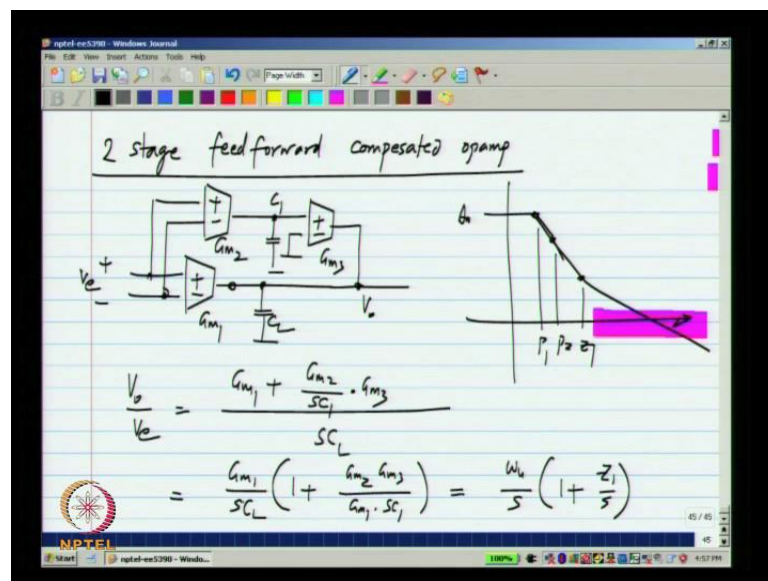 nptel-ee5390 - Windows Journal
File Edit View Insert Actions Tools Help
Page Width
2 stage feedforward compesated opamp
+
-
Gm2
C1
+
-
Gm3
Ve
+
-
+
-
Gm1
CL
Vo
A0
P1 P2 Z1
Vo/Ve = (Gm1 + Gm2/SC1 · Gm3) / SCL
= Gm1/SCL (1 + Gm2 Gm3/Gm1 · SC1) = ωu/S (1 + Z1/S)
NPTEL
45 / 45
45
Start
nptel-ee5390 - Windo...
100%
4:57 PM